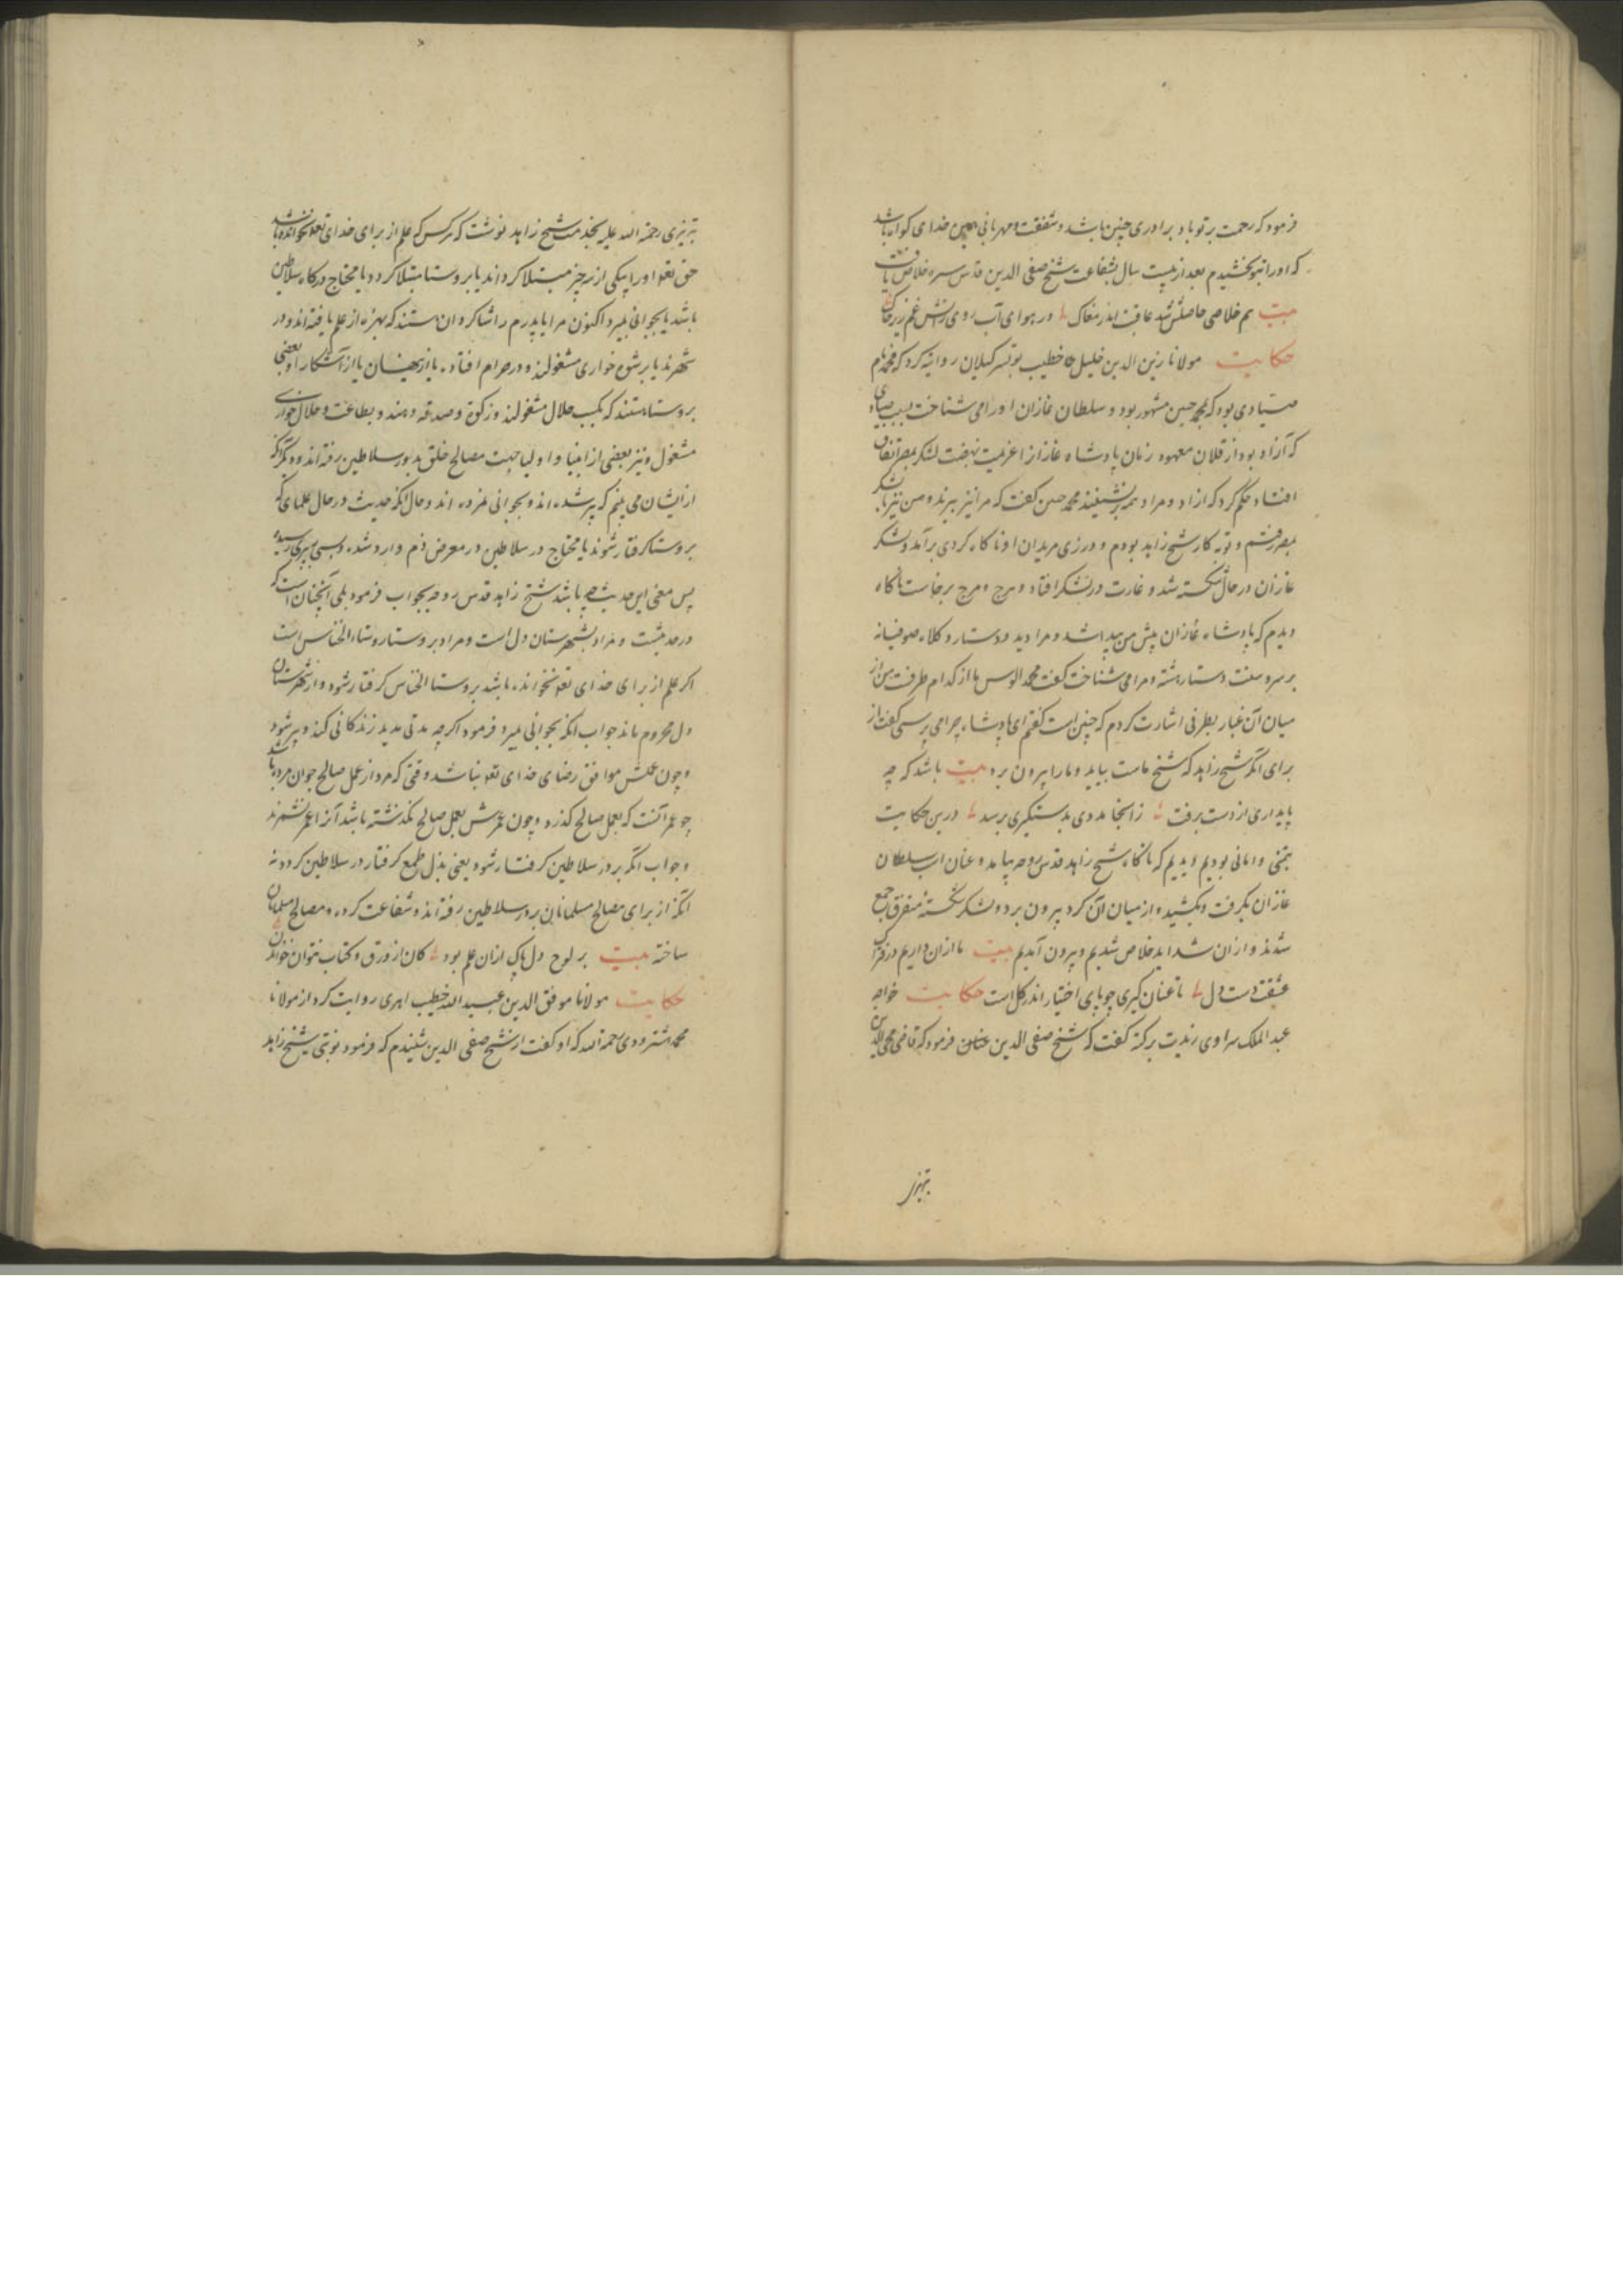 فرمود که رحمت بر تو باد برادری چنین باشد و شفقت و مهربانی چنین خدای گواه باشد
که او را بتو بخشیدم بعد از بیست سال بشفاعت شیخ صفی الدین قدس سره خلاص یافت
بیت هم خلاصی حاصلش شد عاقبت اندر مغاک در هوای آب روی زآتش غم زیر خاک
حکایت مولانا زین الدین خلیل خطیب گیلان روایه کرد که محمد نام
صیادی بود که بمحمد حسن مشهور بود و سلطان غازان او را می شناخت بسبب صیادی
که آزاد بود از قلان معهود زمان پادشاه غازان را عزیمت نهضت لشکر بمصر اتفاق
افتاد حکم کرد که آزاد و مراد همه برنشینند محمد حسن گفت که مرا نیز ببرند و من نیز با لشکر
بمصر رفتم و توبه کار شیخ زاهد بودم و در زی مریدان او ناگاه گردی برآمد و لشکر
غازان در حال شکسته شد و غارت در لشکر افتاد و هرج و مرج برخاست ناگاه
دیدم که پادشاه غازان پیش من پیدا شد و مرا دید و دستار و کلاه صوفیانه
بر سر و دستار بسته و مرا می شناخت گفت محمد الوس ما از کدام طرفست من از
میان آن غبار بطرفی اشارت کردم که چنین است گفتم ای پادشاه چرا می پرسی گفت از
برای آنکه شیخ زاهد که شیخ ماست بیاید و ما را بیرون برد بیت باشد که چه
پایداری از دست برفت ز آنجا مددی بدستگیری برسد درین حکایت
بودیم دیدیم که ناگاه شیخ زاهد قدس روحه بیامد و عنان اسب سلطان
غازان بگرفت و بکشید و از میان آن گرد بیرون برد و لشکر شکسته متفرق جمع
شدند و از آن شداید خلاص شدیم و بیرون آمدیم بیت ما از آن داریم در فتراک
عشقت دست دل تا عنان گیری چو پای اختیار اندر گل است حکایت خواجه
عبد الملک سراوی زیدت برکته گفت که شیخ صفی الدین فرمود که قاضی محی الدین
تبریزی
تبریزی رحمة الله علیه بخدمت شیخ زاهد نوشت که هر کس که علم از برای خدای تعالی نخوانده باشد
حق تعالی او را بیکی از سه چیز مبتلا گرداند یا بروستا مبتلا گردد یا محتاج درگاه سلاطین
باشد یا بجوانی بمیرد اکنون مرا یا پدرم را شاگردان هستند که بهره از علم یافته اند و در
شهرند یا برشوه خواری مشغولند و در حرام افتاده یا از پنهان یا از آشکارا و بعضی
بروستا هستند که بکسب حلال مشغولند و زکوة و صدقه دهند و بطاعت و حلال خواری
مشغول و نیز بعضی از انبیا و اولیا جهت مصالح خلق بدر سلاطین رفته اند و دیگر آنکه
از ایشان می بینم که پیر شده اند و بجوانی نمرده اند و حال آنکه حدیث در حال علمای که
بروستا گرفتار شوند یا محتاج در سلاطین در معرض ذم وارد شده و بسی بپیری رسیده
پس معنی این حدیث چه باشد شیخ زاهد قدس روحه بجواب فرمود بلی آنچنان است که
در حدیثست و مراد بشهرستان دل است و مراد بروستا روستاء الخناس است
اگر علم از برای خدای تعالی نخوانده باشد بروستا الخناس گرفتار شود و از شهرستان
دل محروم ماند جواب آنکه بجوانی میرد فرمود اگرچه مدتی مدید زندگانی کند و پیر شود
و چون عملش موافق رضای خدای تعالی نباشد وقتی که مرد از عمل صالح جوان مرده باشد
چو عمر آنست که بعمل صالح گذرد و چون عمرش بعمل صالح نگذشته باشد آنرا عمر نشمرند
و جواب آنکه بدر سلاطین گرفتار شود یعنی بذل طمع گرفتار در سلاطین گردد نه
آنکه از برای مصالح مسلمانان بدر سلاطین رفته اند و شفاعت کرده و مصالح مسلمانان
ساخته بیت بر لوح دل پاک از آن علم بود کان از ورق و کتاب نتوان خواندن
حکایت مولانا موفق الدین عبید الله خطیب ابهری روایت کرد از مولانا
محمد شترودی رحمة الله که او گفت از شیخ صفی الدین شنیدم که فرمود نوبتی شیخ زاهد